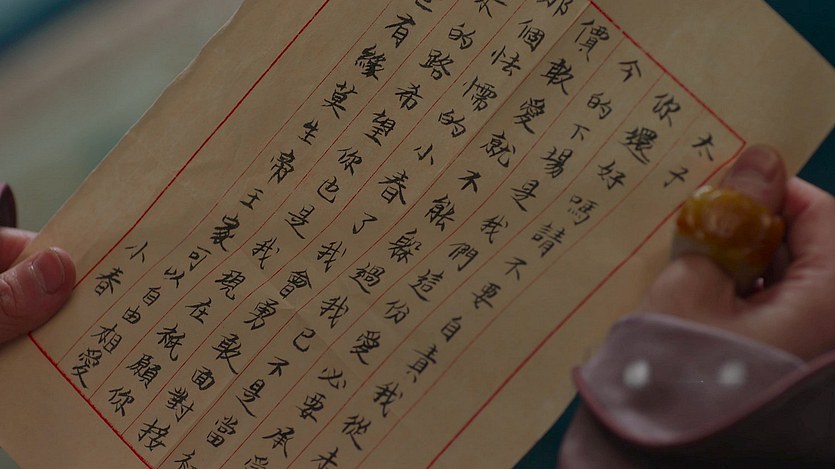 太子
你還好嗎請不要自責我從未
今的下場是我們這份愛必要承受
價敢愛就不能躲過我己不是當
那個怯懦的小春了我會勇敢面對接
來的路希望你也是我現在祇願你
有緣莫生帝王家可以自由相愛
小春